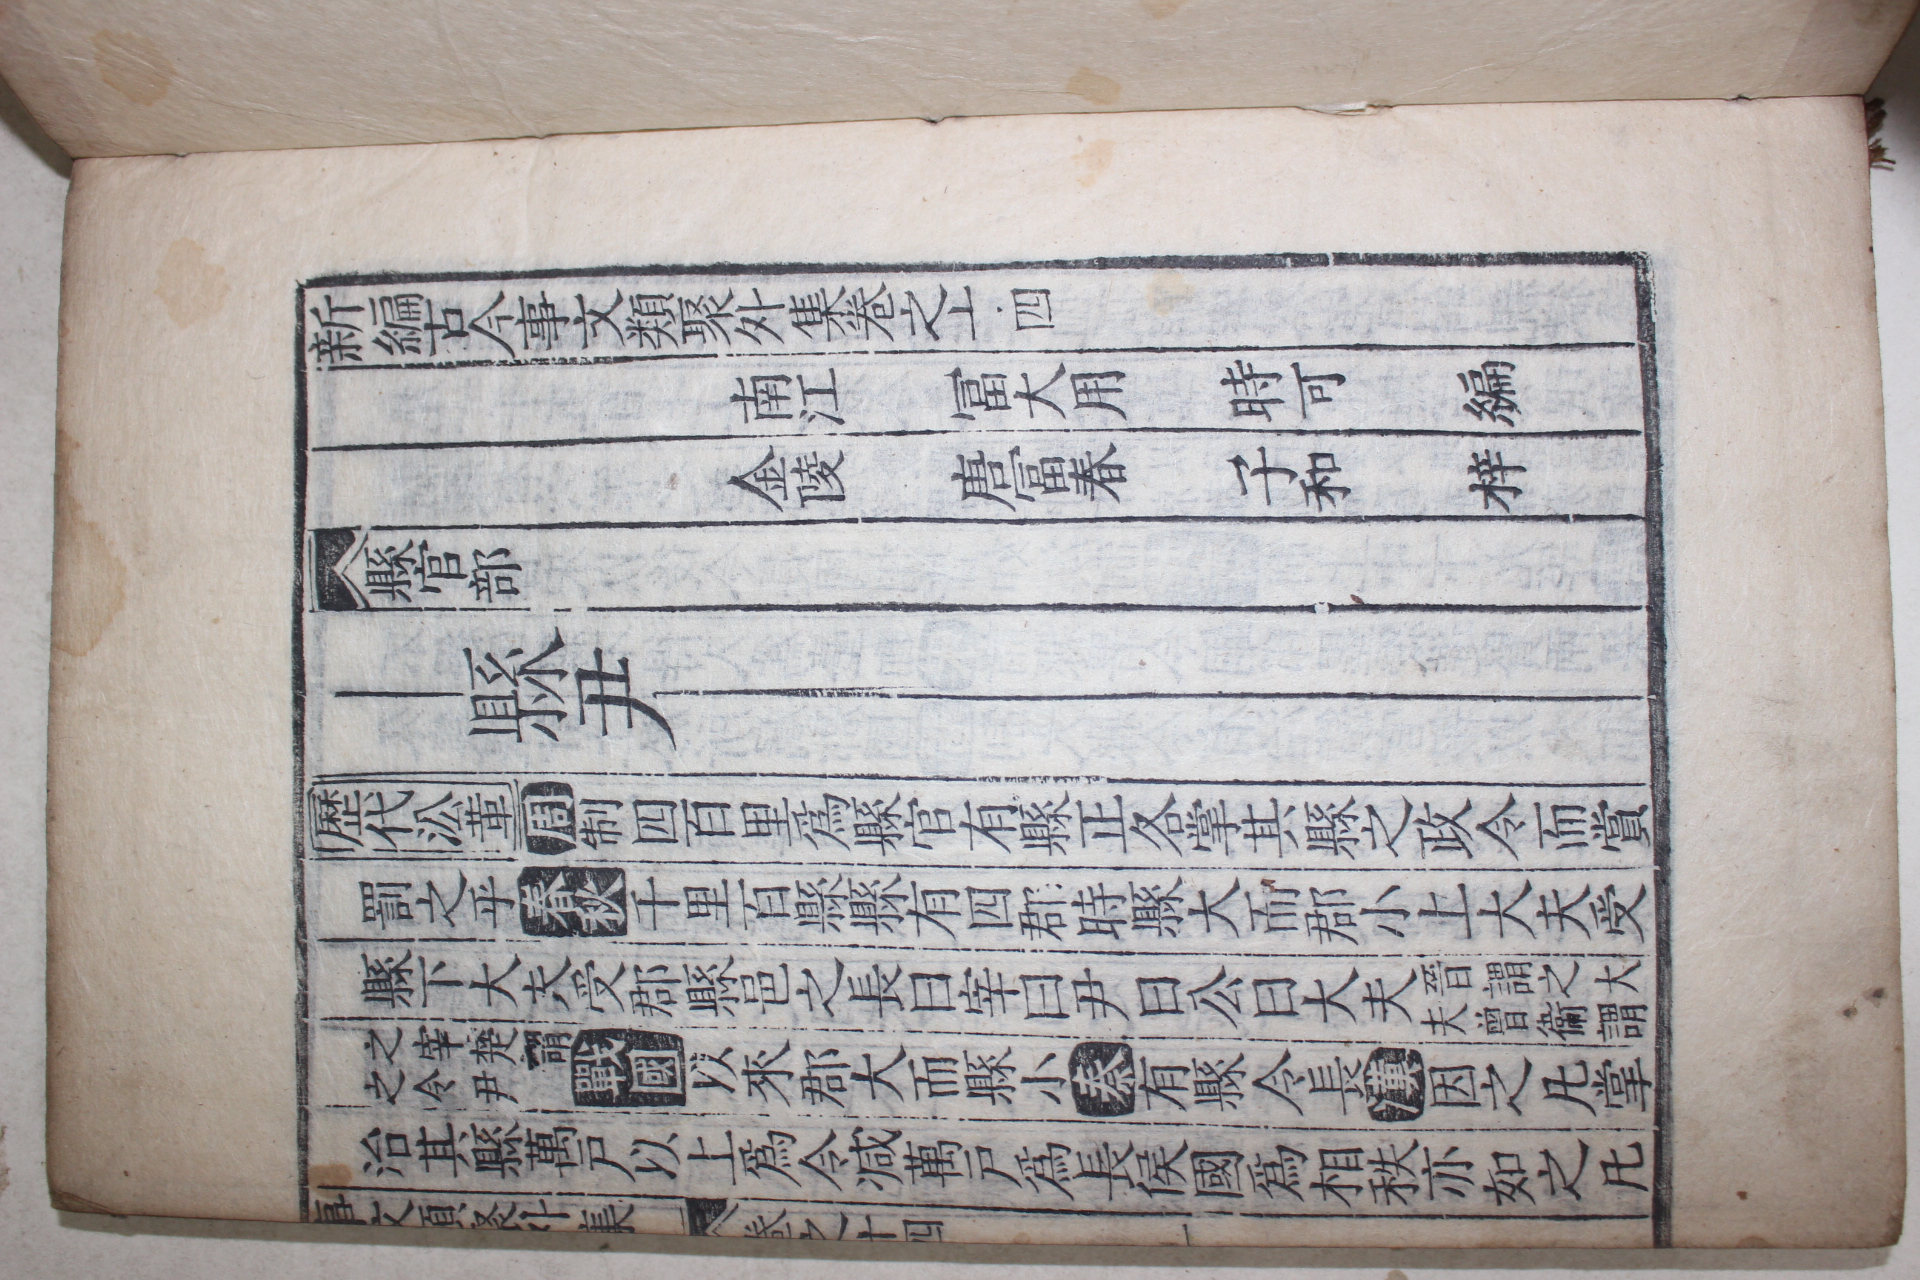 新編古今事文類聚外集卷之十四
南江 富大用 時可 編
金陵 唐富春 子和 梓
縣官部
縣尹
歷代沿革 周制四百里爲縣官有縣正各掌其縣之政令而賞
罰之乎春秋千里百縣縣有四郡時縣大而郡小上大夫受
縣下大夫受郡縣邑之長曰宰曰尹曰公曰大夫晉謂之大
夫魯衞謂
之宰楚謂
之令尹戰國以來郡大而縣小秦有縣令長漢因之凡掌
治其縣萬戶以上爲令減萬戶爲長侯國爲相秩亦如之凡
事文類聚外集 卷之十四 一